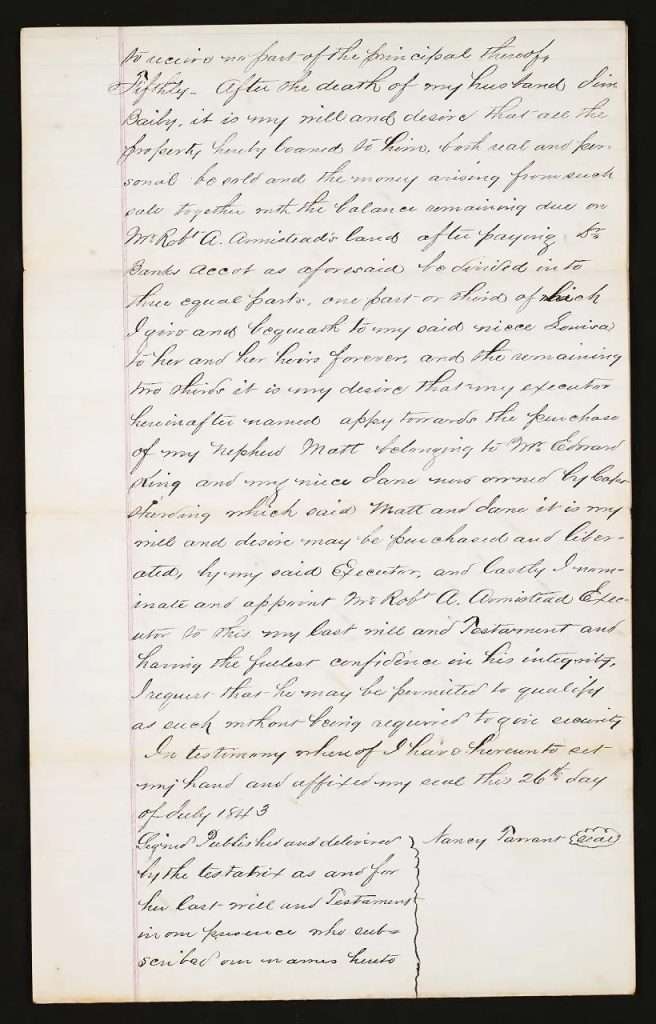 to receive no part of the principal thereof,
Fifthly - After the death of my husband Jim
Baily, it is my will and desire that all the
property hereby loaned to him, both real and per-
sonal be sold and the money arising from such
sale together with the balance remaining due on
Mr Robt A. Armistead's land after paying Dr
Banks accot as aforesaid be divided in to
three equal parts, one part or third of which
I give and bequeath to my said niece Louisa
to her and her heirs forever, and the remaining
two thirds it is my desire that my executor
hereinafter named appy towards the purchase
of my nephew Matt belonging to Mr Edward
King and my niece Jane now owned by Capt
which said Matt and Jane it is my
will and desire may be purchased and liber-
ated, by my said Executor, and lastly I nom-
inate and appoint Mr Robt A. Armistead Exec-
utor to this my last will and Testament and
having the fullest confidence in his integrity,
I request that he may be permitted to qualify
as such without being required to give security
In testimony where of I have hereunto set
my hand and affixed my seal this 26th day
of July 1843
Signed Published and delivered
by the testatrix as and for
her last will and Testament
in our presence who sub-
scribed our names hereto
Nancy Tarrant Seal